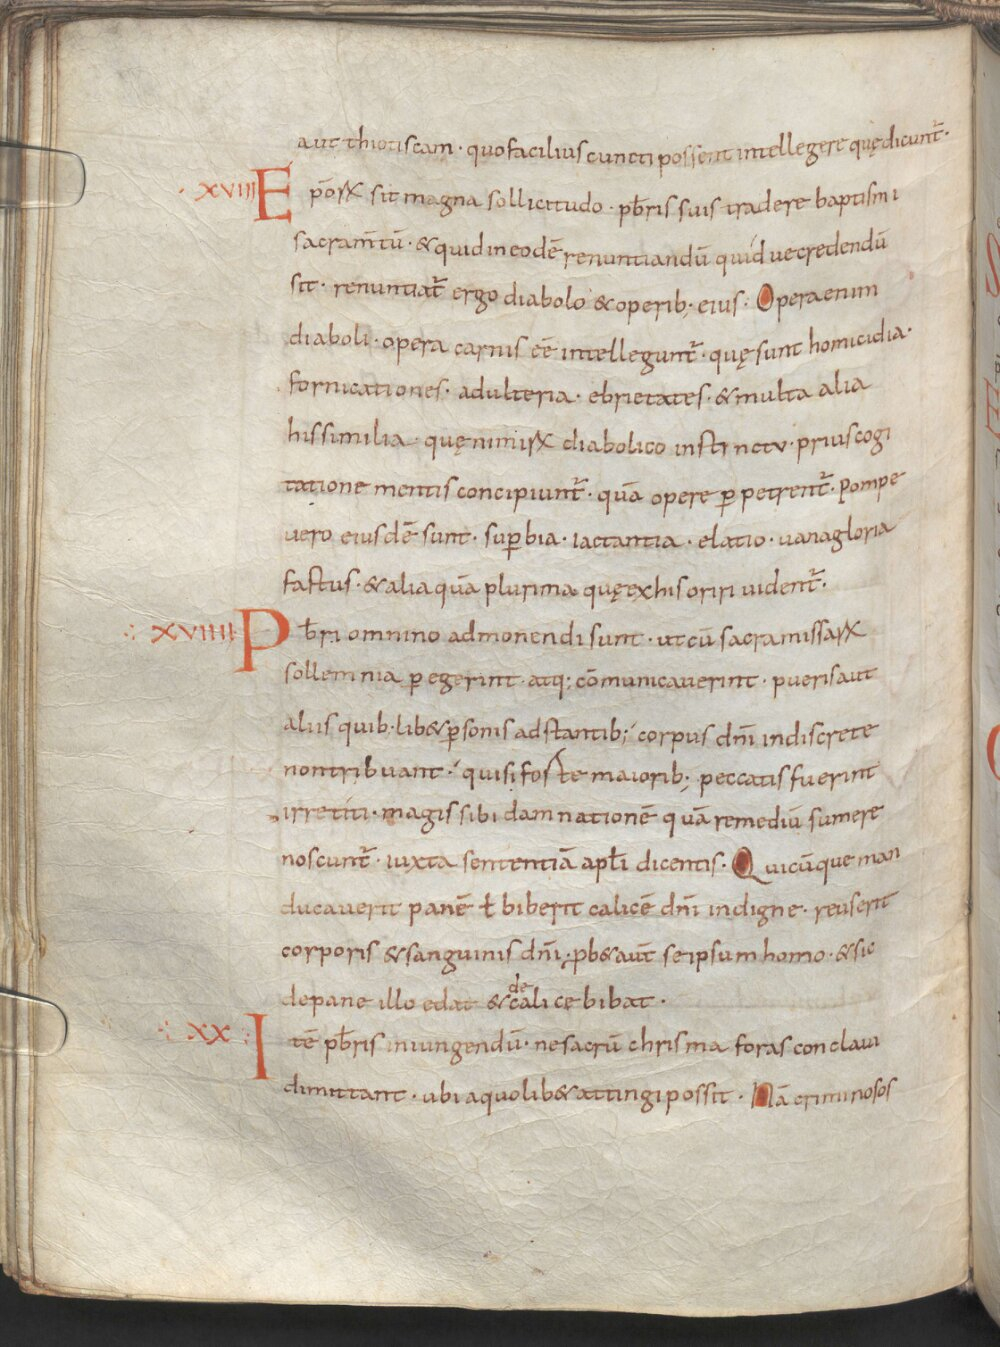 aut thiotiscam · quo facilius cuncti possent intellegere quę dicunt̄ ·
xviii Ep̄oꝝ sit magna sollicitudo · pb̄ris suis tradere baptismi
sacram̄tū · & quid in eodē renuntiandū quid ve credendū
sit · renuntiat̄ ergo diabolo & operib; eius · Opera enim
diaboli · opera carnis eē intellegunt̄ · quę sunt homicidia ·
fornicationes · adulteria · ebrietates · & multa alia
his similia · quę nimiꝝ diabolico instinctu · prius cogi
tatione mentis concipiunt̄ · quā opere ꝑpetrent̄ · pompe
vero eiusdē sunt · suꝑbia · iactantia · elatio · vana gloria
fastus · & alia quā plurima quę ex his oriri uident̄ ·
xviiii Pb̄ri omnino admonendi sunt · ut cū sacra missaꝝ
sollemnia ꝑegerint · atq; cōmunicaverint · pueris aut
aliis quib · lib& ꝑsonis adstantib; corpus dn̄i indiscrete
non tribuant · qui si forte maiorib; peccatis fuerint
irretiti · magis sibi damnationē quā remediū sumere
noscunt̄ · iuxta sententiā apl̄i dicentis · Quicūque man
ducaverit panē ł biberit calicē dn̄i indigne · reus erit
corporis & sanguinis dn̄i · ꝓb& aut̄ se ipsum homo · & sic
de pane illo edat & de calice bibat ·
xx Itē pb̄ris iniungendū · ne sacrū chrisma foras conclavi
dimittant · ubi a quolib& attingi possit · Nā criminosos